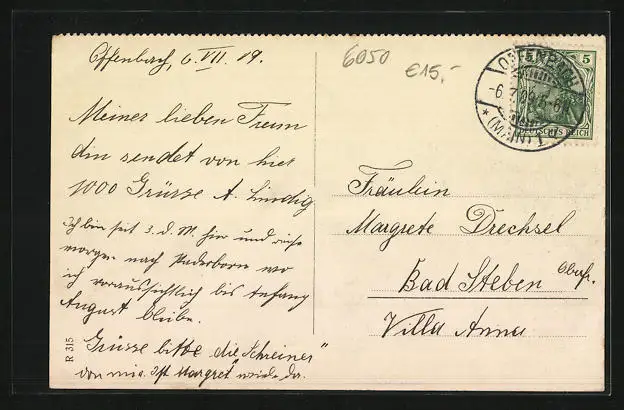 Offenbach, 6. VII. 09.
6050
€15,-
OFFENBACH
-6. 7. 09. 5-6 N
* (MAIN) 1
5
DEUTSCHES REICH
Meiner lieben Freun
din sendet von hier
1000 Grüsse A. Lindig
Ich bin seit 3. d. M. hier und reise
morgen nach Paderborn wo
ich voraussichtlich bis Anfang
August bleibe.
Grüsse bitte „die Schreiner"
von mir. Ist „Margret"
Fräulein
Margrete Drechsel
Bad Steben Oberfr.
Villa Anna
R 315